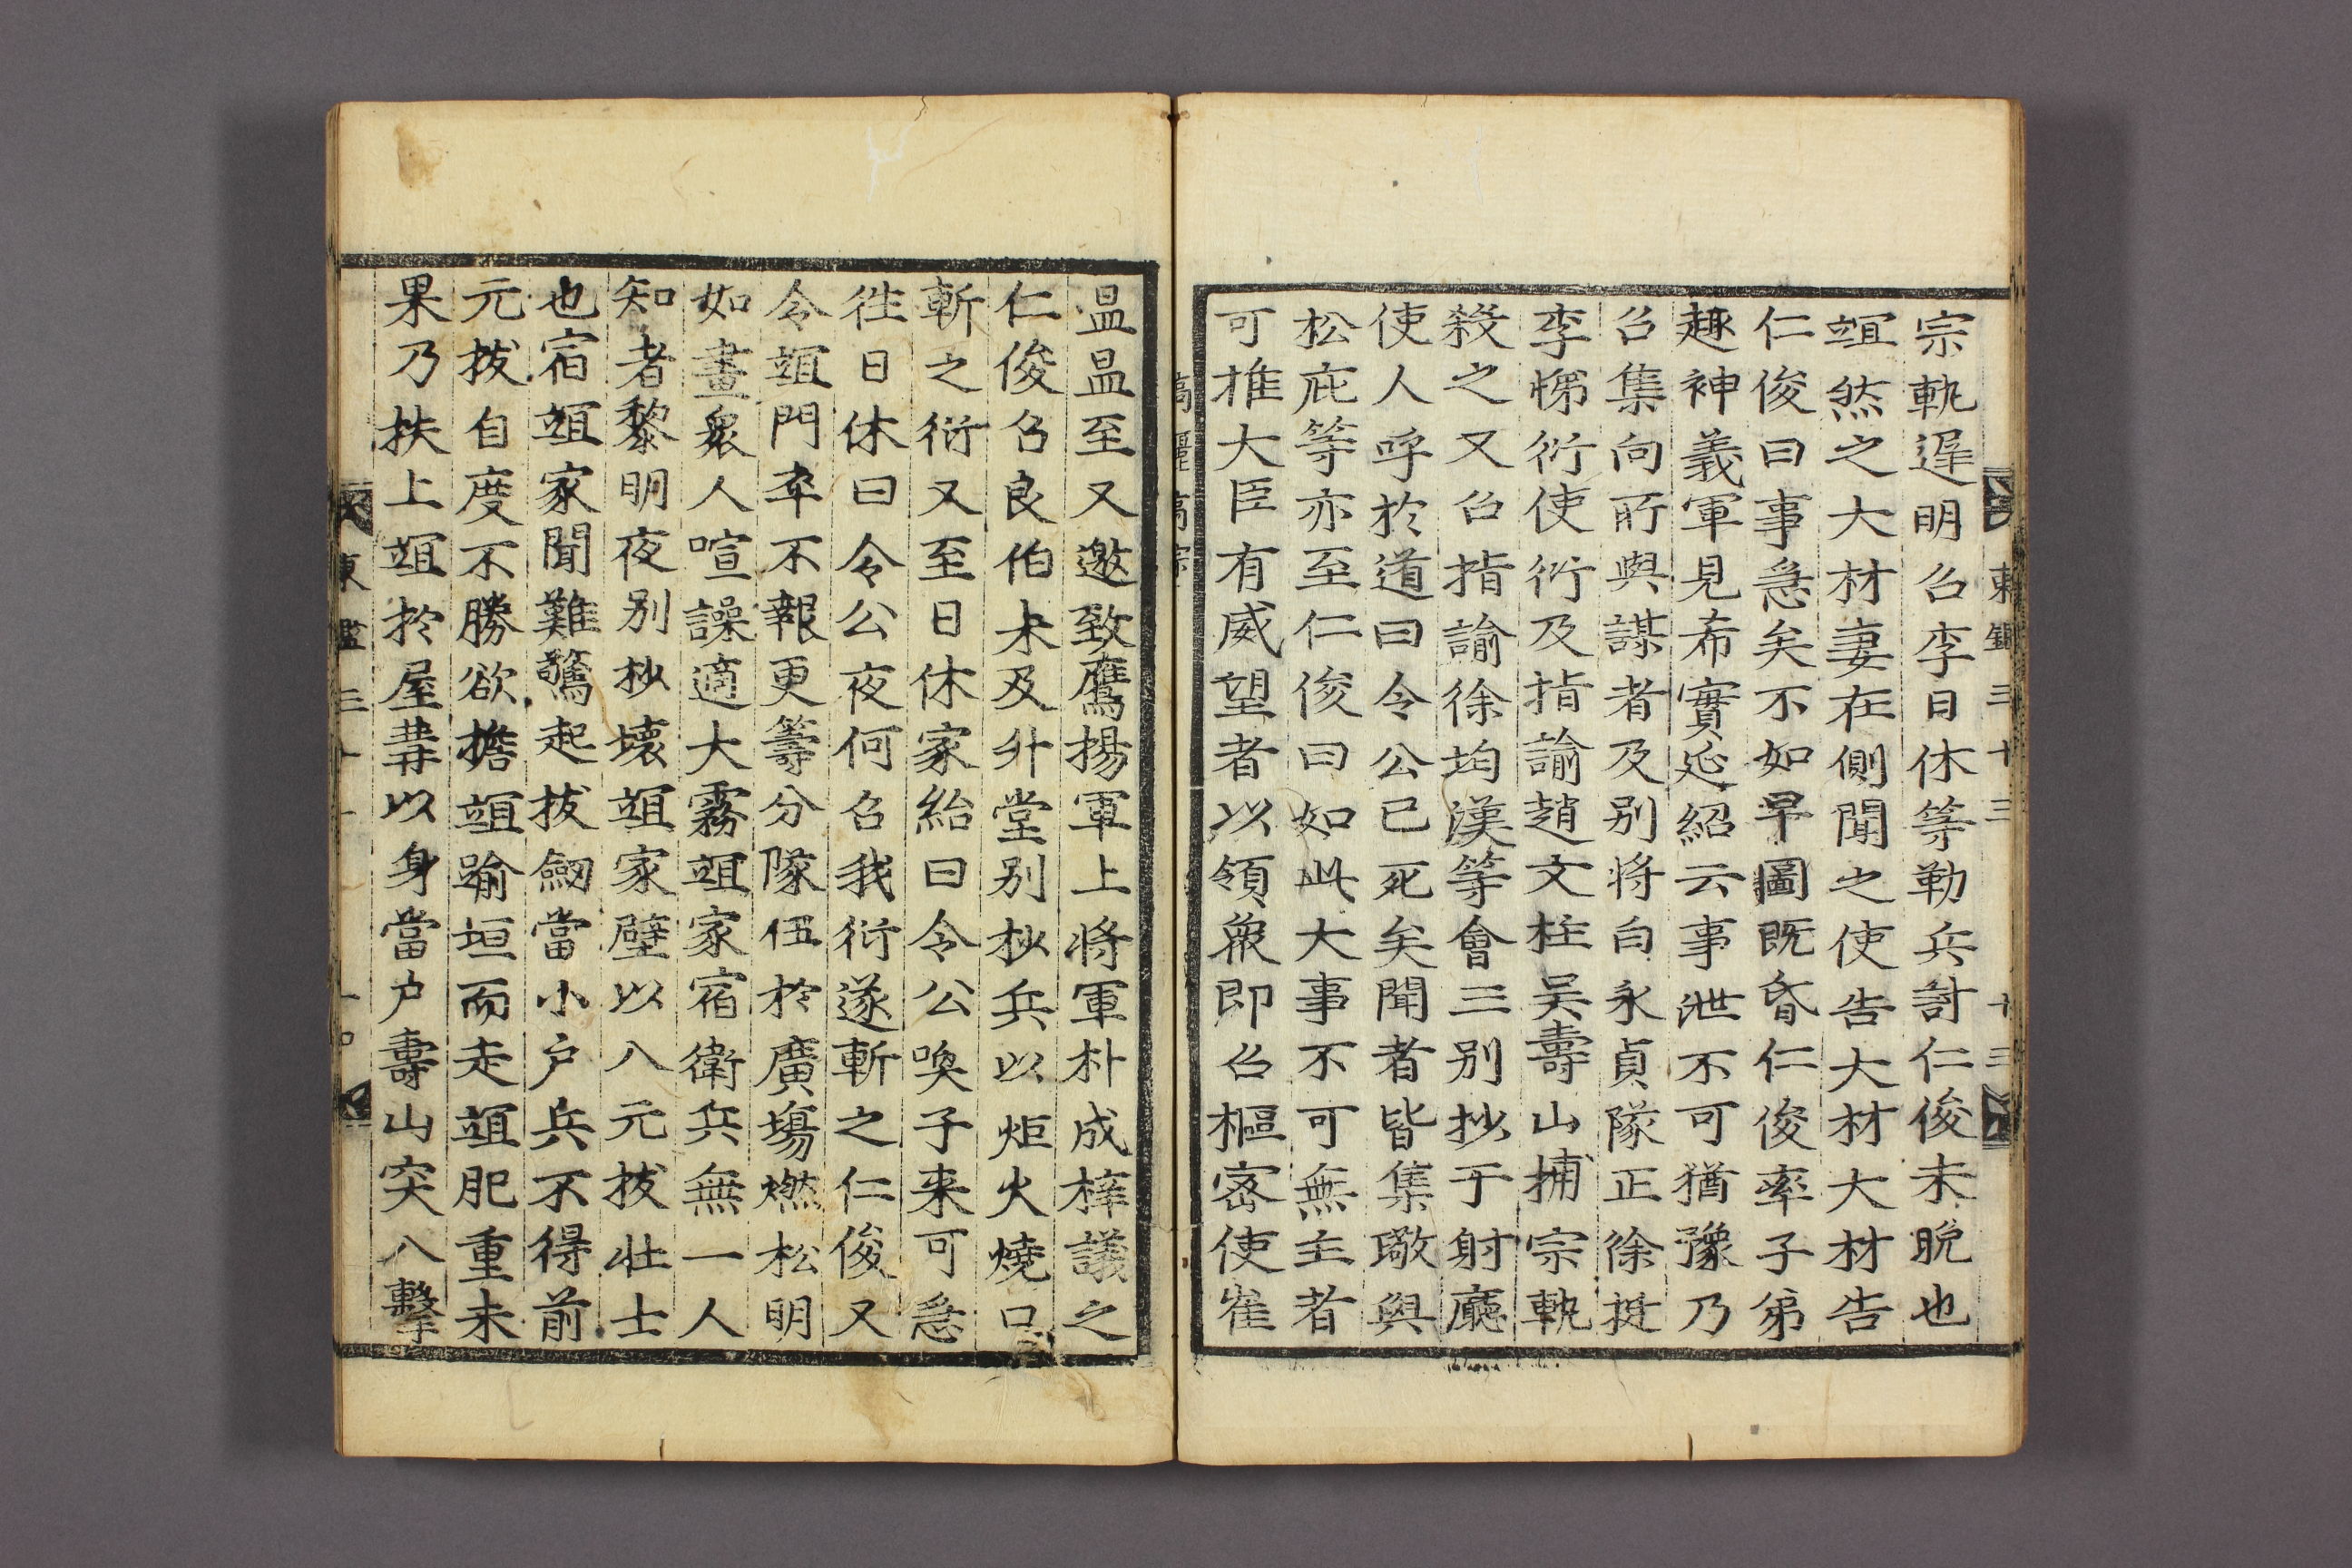 宗軌遅明召李日休等勒兵討仁俊未晩也
竩然之大材妻在側聞之使告大材大材告
仁俊曰事急矣不如早圖既昏仁俊率子弟
趣神義軍見希實延紹云事泄不可猶豫乃
召集向所與謀者及别将白永貞隊正徐挺
李悌衍使衍及指諭趙文柱吴壽山捕宗軌
殺之又召指諭徐均漢等會三别抄于射廳
使人呼於道曰令公已死矣聞者皆集璥與
松庇等亦至仁俊曰如此大事不可無主者
可推大臣有威望者以領衆即召樞密使崔
高麗高宗
東鑑三十三
十三
昷昷至又邀致鷹揚軍上将軍朴成梓議之
仁俊召良伯未及升堂别抄兵以炬火燒口
斬之衍又至日休家紿曰令公喚子来可急
徃日休曰令公夜何召我衍遂斬之仁俊又
令竩門卒不報更籌分隊伍於廣塲燃松明
如晝衆人喧譟適大霧竩家宿衛兵無一人
知者黎明夜别抄壊竩家壁以八元拔壮士
也宿竩家聞難驚起拔劒當小户兵不得前
元拔自度不勝欲擔竩踰垣而走竩肥重未
果乃扶上竩於屋冓以身當户壽山突入擊
東鑑三十
十四